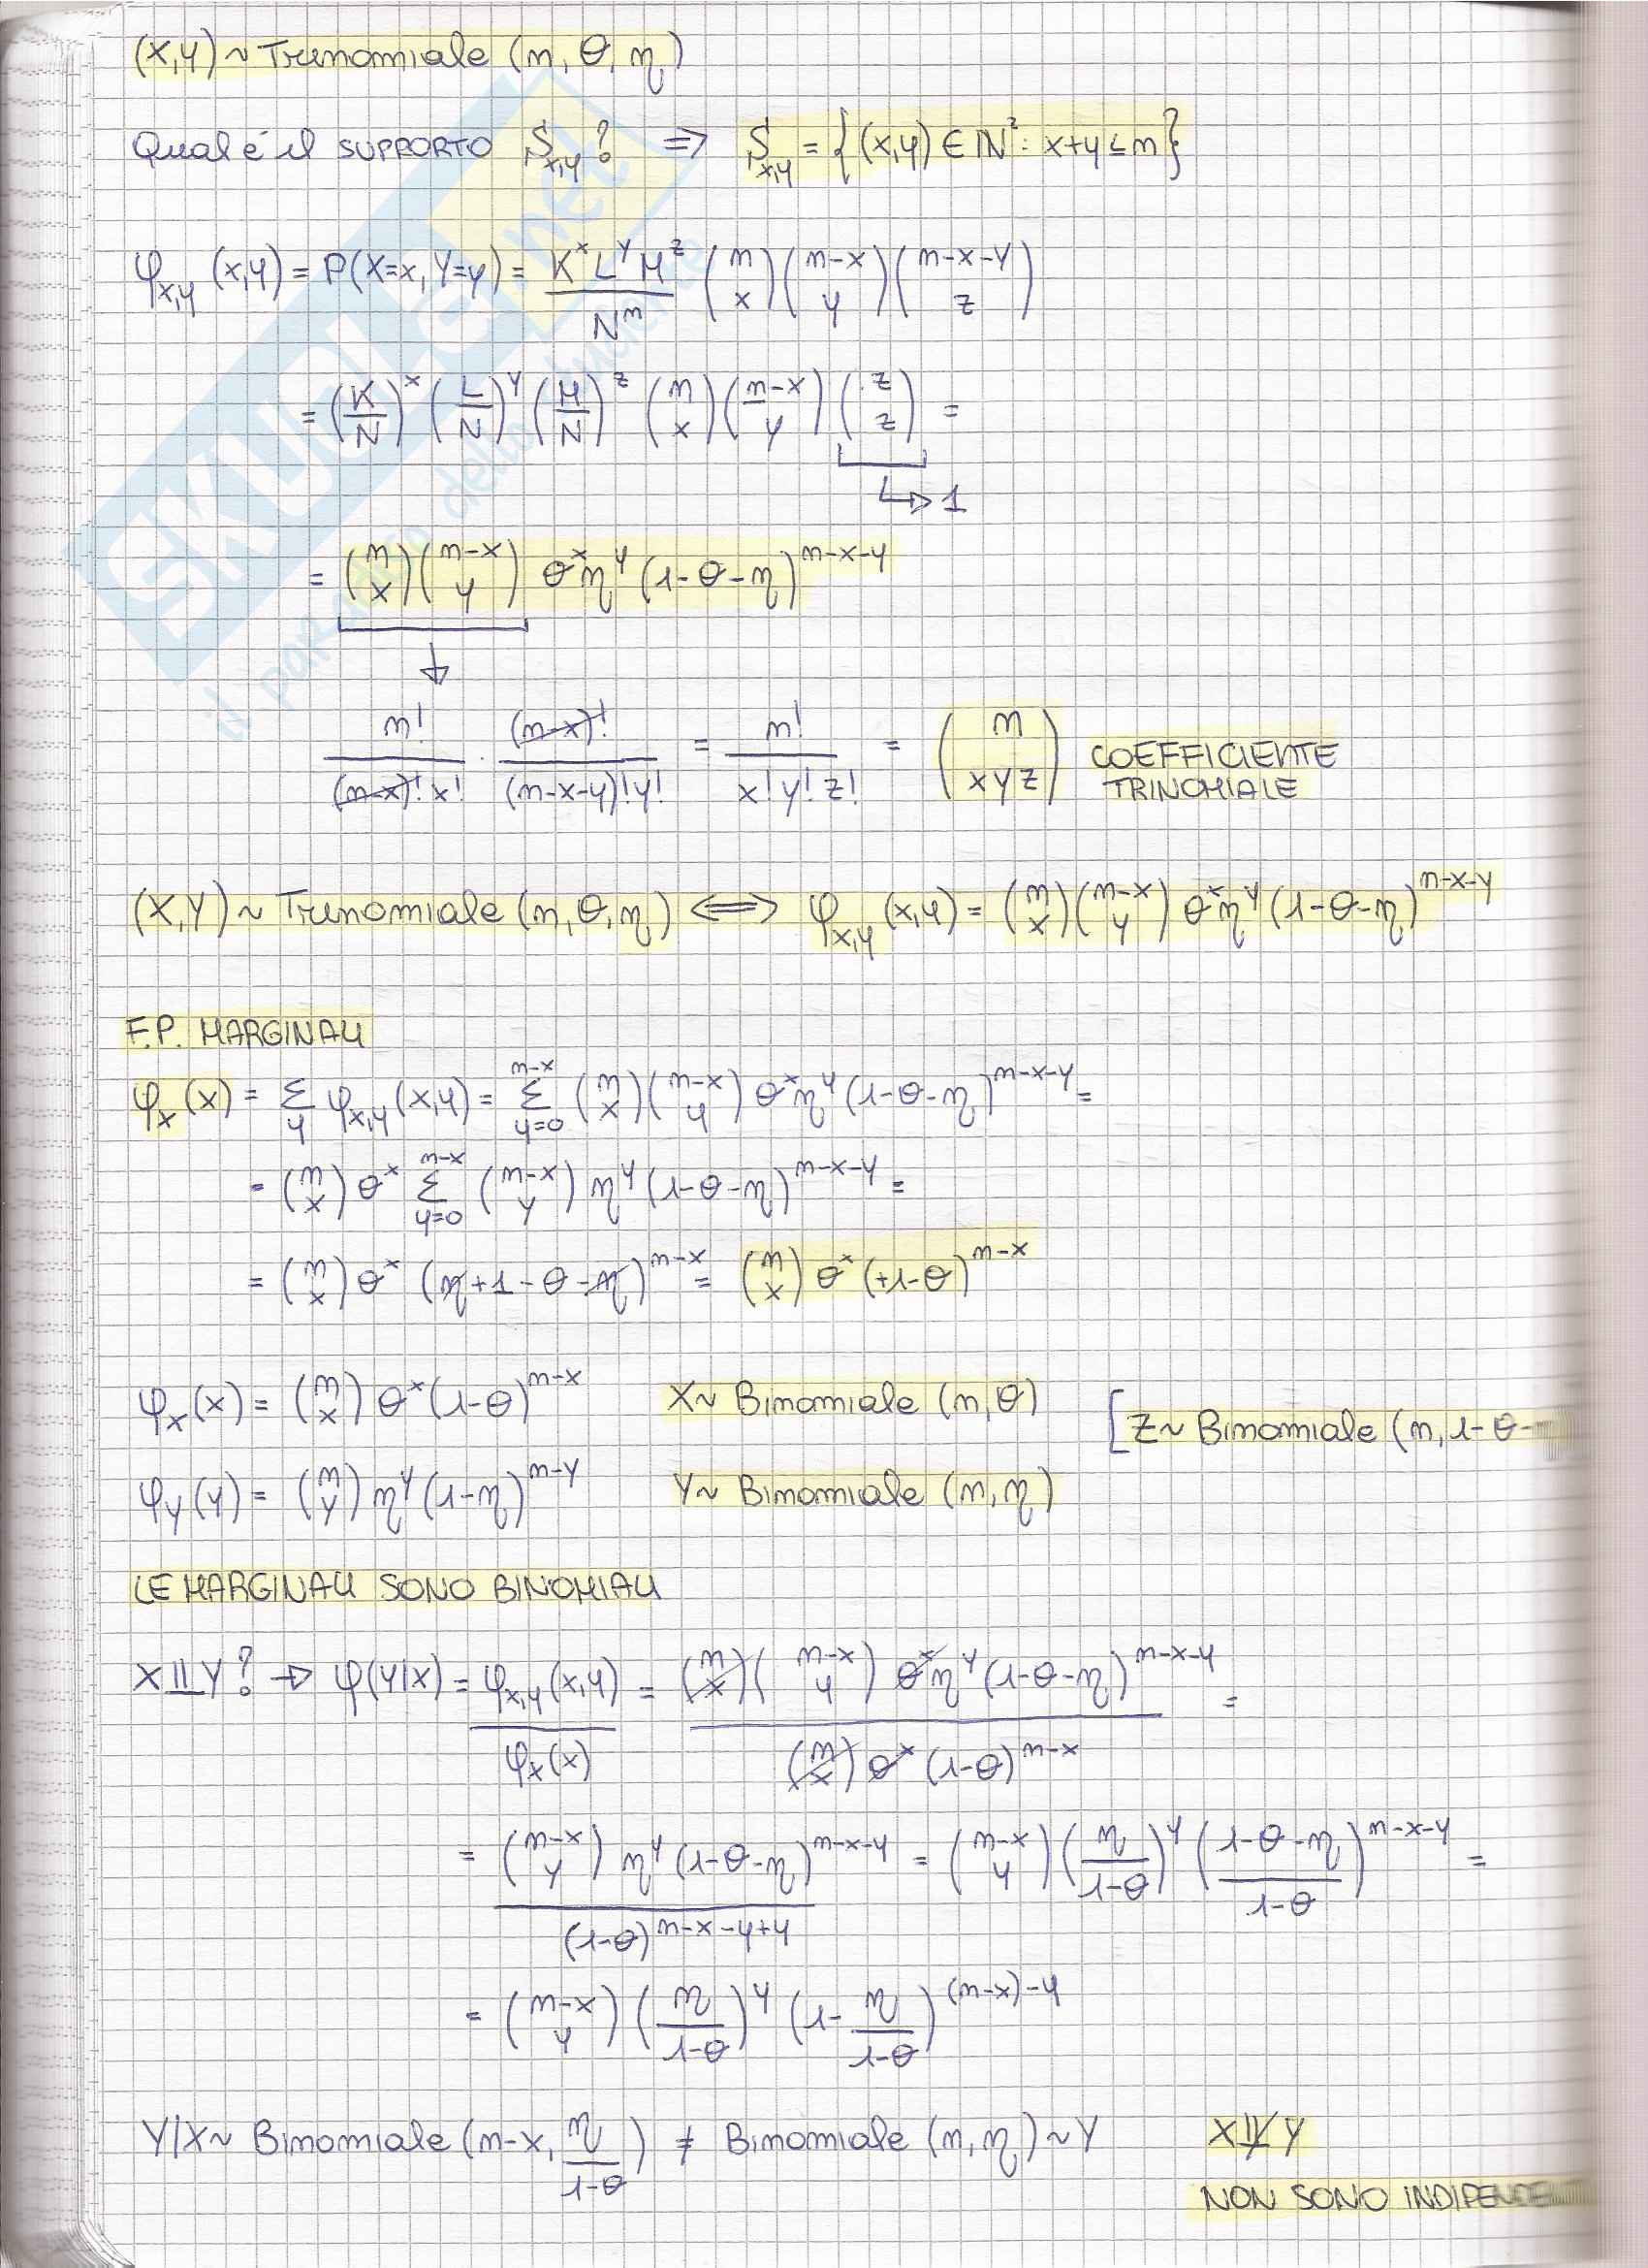 (X,Y) ~ Trinomiale (n, θ, η)
Qual è il SUPPORTO S_{x,y}? ⇒ S_{x,y} = {(x,y) ∈ ℕ² : x+y ≤ n}
φ_{x,y}(x,y) = P(X=x, Y=y) = K^x L^y M^z / N^n (n x)(n-x y)(n-x-y z)
= (K/N)^x (L/N)^y (M/N)^z (n x)(n-x y)(z z) =
↳ 1
= (n x)(n-x y) θ^x η^y (1-θ-η)^{n-x-y}
↓
n!/((n-x)! x!) · (n-x)!/((n-x-y)! y!) = n!/(x! y! z!) = (n x y z) COEFFICIENTE
TRINOMIALE
(X,Y) ~ Trinomiale (n, θ, η) ⇔ φ_{x,y}(x,y) = (n x)(n-x y) θ^x η^y (1-θ-η)^{n-x-y}
F.P. MARGINALI
φ_x(x) = Σ_y φ_{x,y}(x,y) = Σ_{y=0}^{n-x} (n x)(n-x y) θ^x η^y (1-θ-η)^{n-x-y} =
= (n x) θ^x Σ_{y=0}^{n-x} (n-x y) η^y (1-θ-η)^{n-x-y} =
= (n x) θ^x (η+1-θ-η)^{n-x} = (n x) θ^x (+1-θ)^{n-x}
φ_x(x) = (n x) θ^x (1-θ)^{n-x} X ~ Binomiale (n, θ) [Z ~ Binomiale (n, 1-θ-
φ_y(y) = (n y) η^y (1-η)^{n-y} Y ~ Binomiale (n, η)
LE MARGINALI SONO BINOMIALI
X⫫Y? → φ(y|x) = φ_{x,y}(x,y)/φ_x(x) = (n x)(n-x y) θ^x η^y (1-θ-η)^{n-x-y} / (n x) θ^x (1-θ)^{n-x} =
= (n-x y) η^y (1-θ-η)^{n-x-y} / (1-θ)^{n-x-y+y} = (n-x y) (η/(1-θ))^y ((1-θ-η)/(1-θ))^{n-x-y} =
= (n-x y) (η/(1-θ))^y (1- η/(1-θ))^{(n-x)-y}
Y|X ~ Binomiale (n-x, η/(1-θ)) ≠ Binomiale (n, η) ~ Y X⫫̸Y
NON SONO INDIPENDE
SKUOLA.net
il portale dello studente